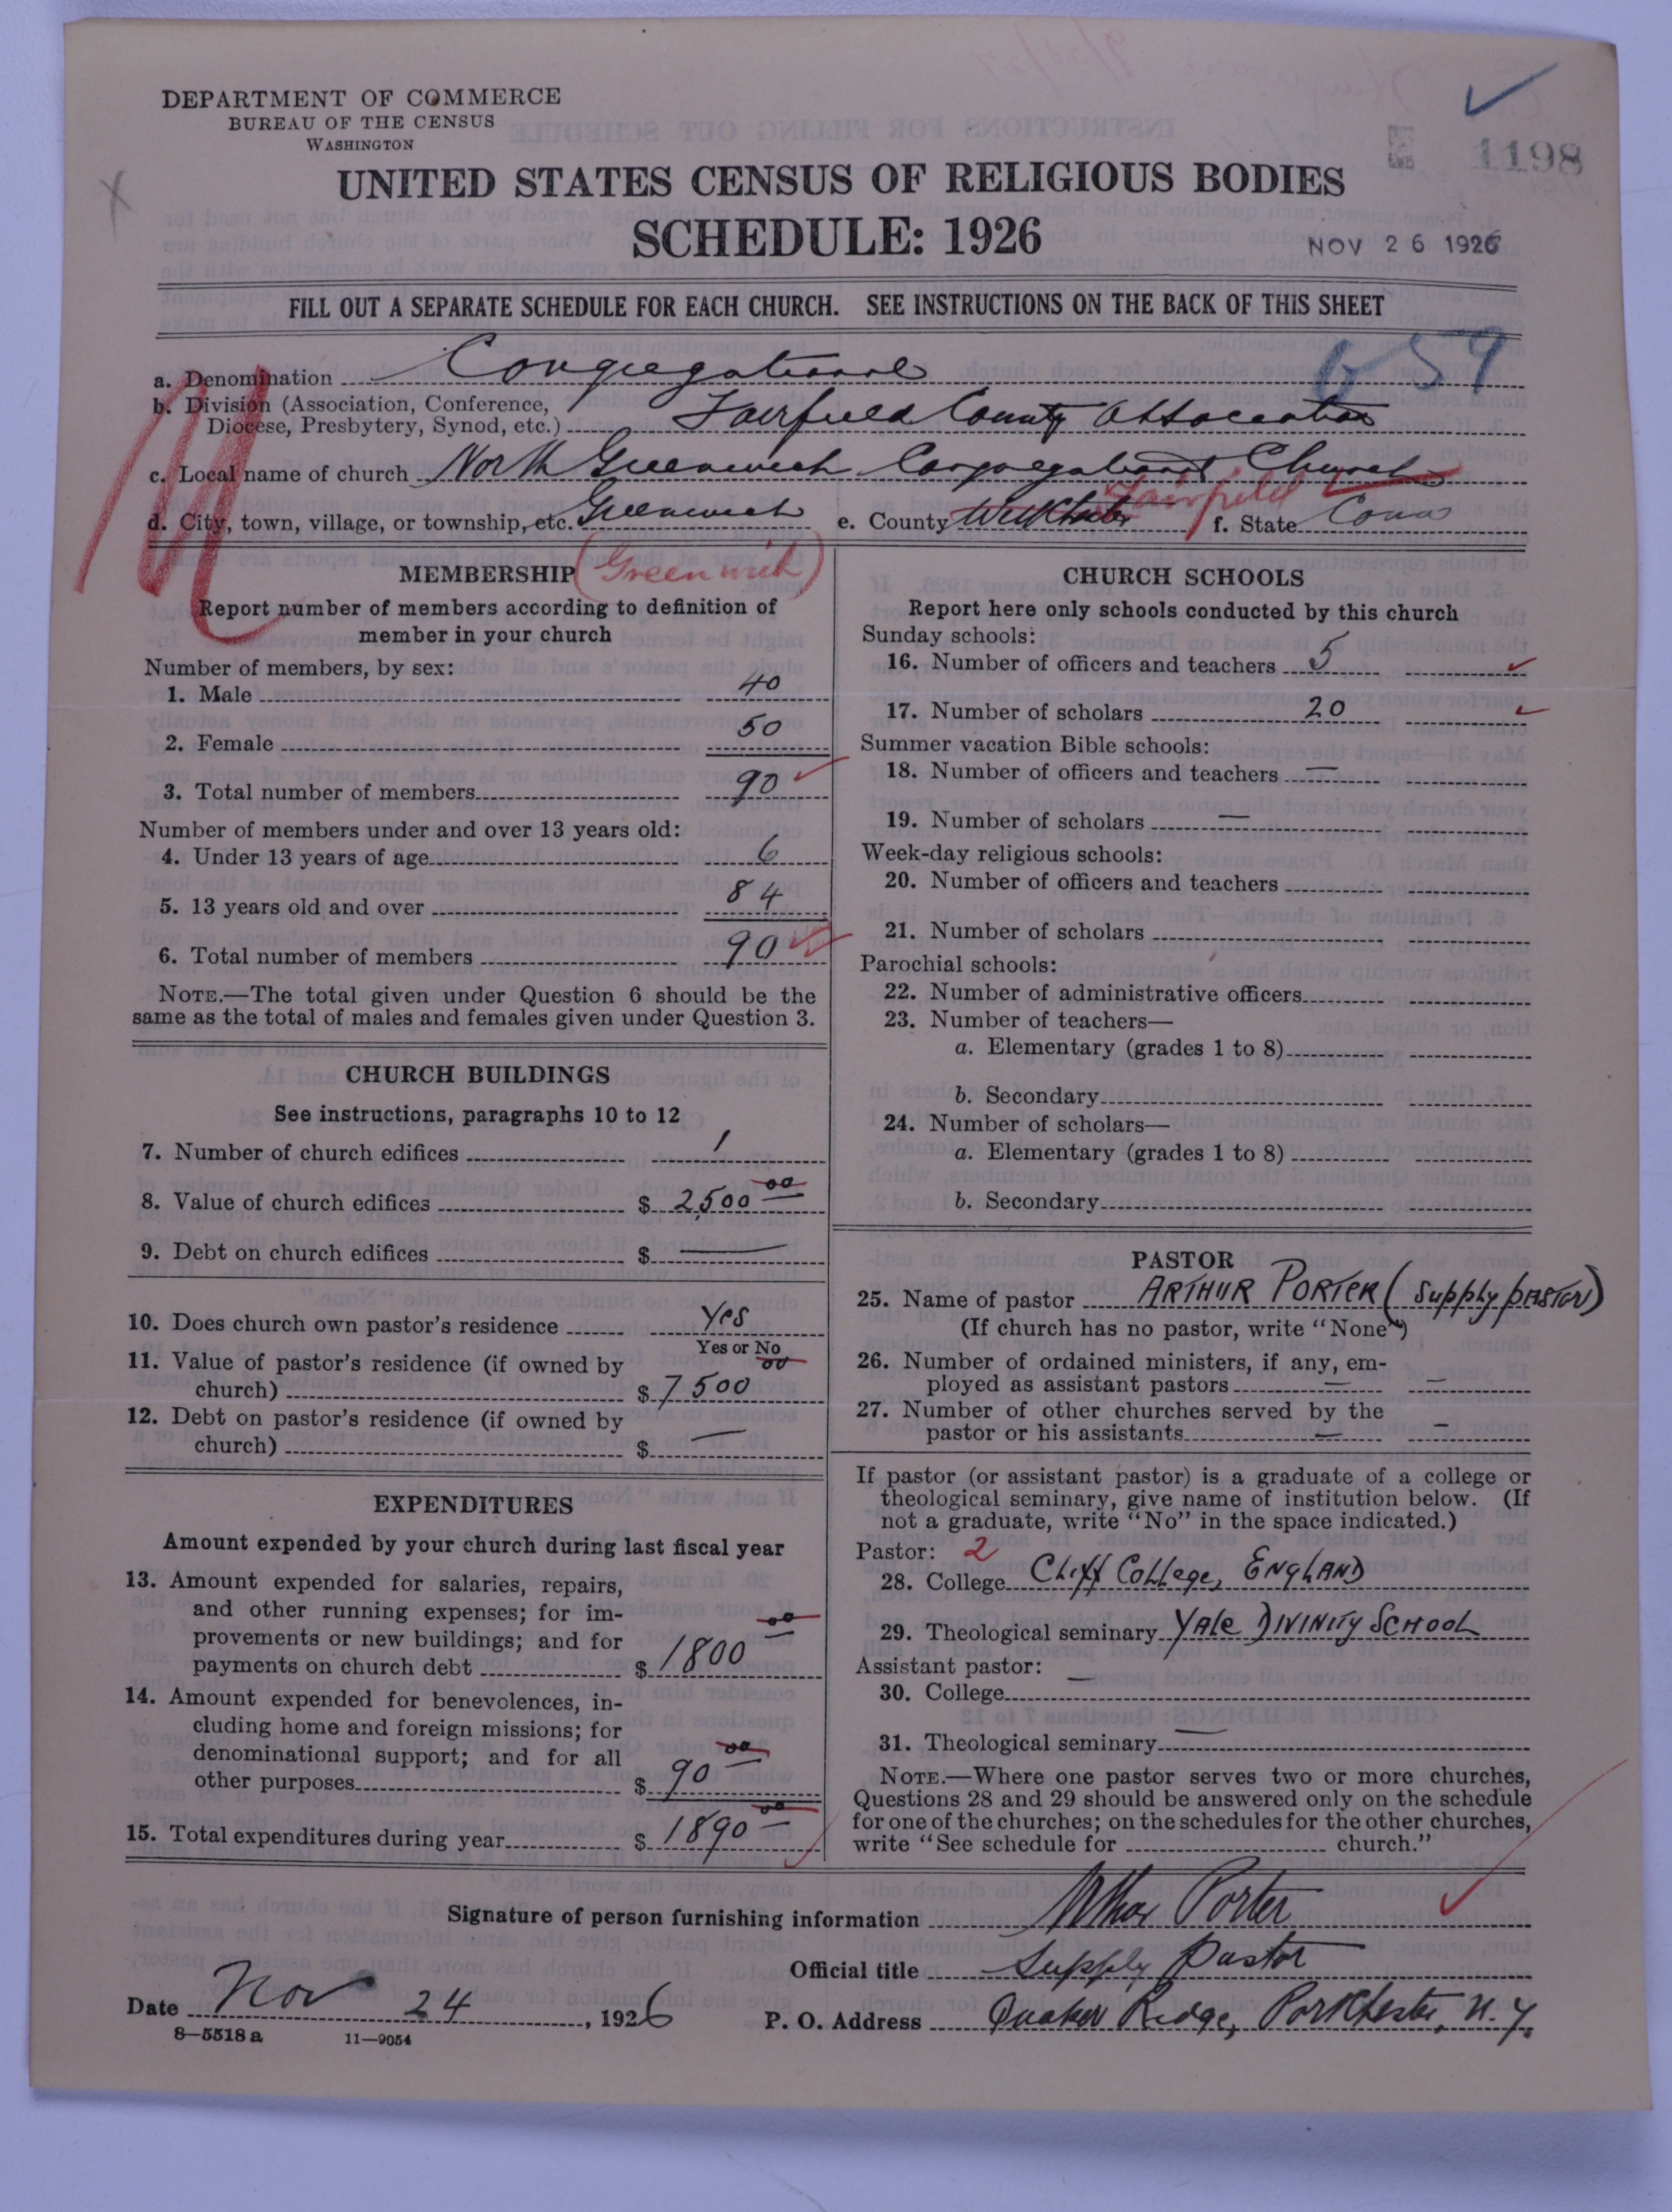 DEPARTMENT OF COMMERCE
BUREAU OF THE CENSUS
WASHINGTON
1198
UNITED STATES CENSUS OF RELIGIOUS BODIES
SCHEDULE: 1926
NOV 26 1926
FILL OUT A SEPARATE SCHEDULE FOR EACH CHURCH. SEE INSTRUCTIONS ON THE BACK OF THIS SHEET
a. Denomination Congregational
b. Division (Association, Conference,
Diocese, Presbytery, Synod, etc.) Fairfield County Association
c. Local name of church North Greenwich Congregational Church
d. City, town, village, or township, etc. Greenwich e. County Westchester Fairfield f. State Conn
MEMBERSHIP (Greenwich)
Report number of members according to definition of
member in your church
Number of members, by sex:
1. Male 40
2. Female 50
3. Total number of members 90
Number of members under and over 13 years old:
4. Under 13 years of age 6
5. 13 years old and over 84
6. Total number of members 90
NOTE.—The total given under Question 6 should be the
same as the total of males and females given under Question 3.
CHURCH BUILDINGS
See instructions, paragraphs 10 to 12
7. Number of church edifices 1
8. Value of church edifices $ 2,500 00
9. Debt on church edifices $ —
10. Does church own pastor's residence Yes
Yes or No
11. Value of pastor's residence (if owned by
church) $ 7500 00
12. Debt on pastor's residence (if owned by
church) $ —
EXPENDITURES
Amount expended by your church during last fiscal year
13. Amount expended for salaries, repairs,
and other running expenses; for im-
provements or new buildings; and for
payments on church debt $ 1800 00
14. Amount expended for benevolences, in-
cluding home and foreign missions; for
denominational support; and for all
other purposes $ 90 00
15. Total expenditures during year $ 1890 00
CHURCH SCHOOLS
Report here only schools conducted by this church
Sunday schools:
16. Number of officers and teachers 5
17. Number of scholars 20
Summer vacation Bible schools:
18. Number of officers and teachers —
19. Number of scholars —
Week-day religious schools:
20. Number of officers and teachers
21. Number of scholars
Parochial schools:
22. Number of administrative officers
23. Number of teachers—
a. Elementary (grades 1 to 8)
b. Secondary
24. Number of scholars—
a. Elementary (grades 1 to 8)
b. Secondary
PASTOR
25. Name of pastor ARTHUR PORTER (Supply PASTOR)
(If church has no pastor, write "None")
26. Number of ordained ministers, if any, em-
ployed as assistant pastors — —
27. Number of other churches served by the
pastor or his assistants — —
If pastor (or assistant pastor) is a graduate of a college or
theological seminary, give name of institution below. (If
not a graduate, write "No" in the space indicated.)
Pastor: 2
28. College Cliff College, ENGLAND
29. Theological seminary YALE DIVINITY SCHOOL
Assistant pastor: —
30. College
31. Theological seminary —
NOTE.—Where one pastor serves two or more churches,
Questions 28 and 29 should be answered only on the schedule
for one of the churches; on the schedules for the other churches,
write "See schedule for church."
Signature of person furnishing information Arthur Porter
Official title Supply Pastor
Date Nov 24, 1926 P. O. Address Quaker Ridge, Portchester, N.Y.
8—5518a 11—9054